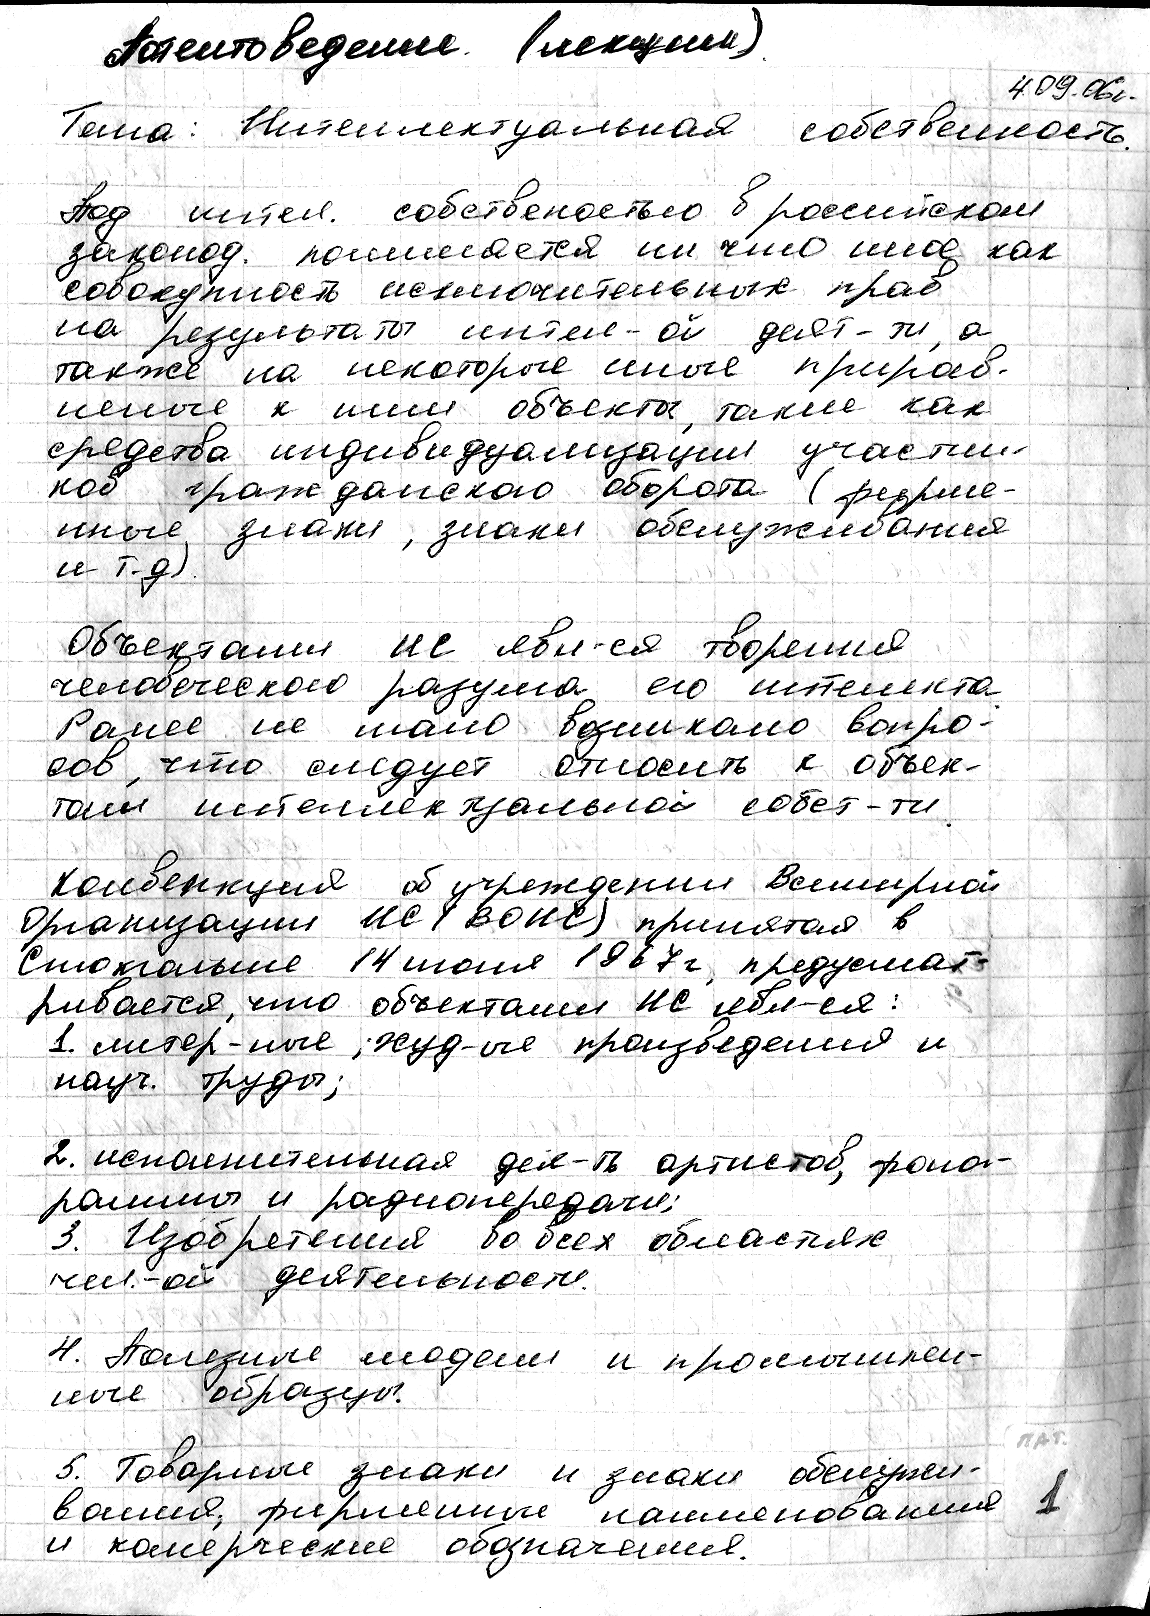 Патентоведение. (лекции)
4.09.06г.
Тема: Интеллектуальная собственность.
Под интел. собственостью в российском
законод. понимается ни что иное как
совокупность исключительных прав
на результаты интел-ой деят-ти, а
также на некоторые иные прирав-
неные к ним объекты, такие как
средства индивидуализации участни-
ков гражданского оборота (фирме-
нные знаки, знаки обслуживания
и т.д).
Объектами ИС явл-ся творения
человеческого разума, его интелекта.
Ранее не мало возникало вопро-
сов, что следует относить к объек-
там интеллектуальной собст-ти.
Конвенция об учреждении Всемирной
Организации ИС (ВОИС) принятая в
Стокгольме 14 июля 1967г, предусмат-
ривается, что объектами ИС явл-ся:
1. литер-ные, худ-ые произведения и
науч. труды;
2. исполнительная дея-ть артистов, фоног-
раммы и радиопередачи;
3. Изобретения во всех областях
чел.-ой деятельности.
4. Полезные модели и промышлен-
ные образцы.
5. Товарные знаки и знаки обслужи-
вания, фирменные наименования
и комерческие обозначения.
ПАТ.
1